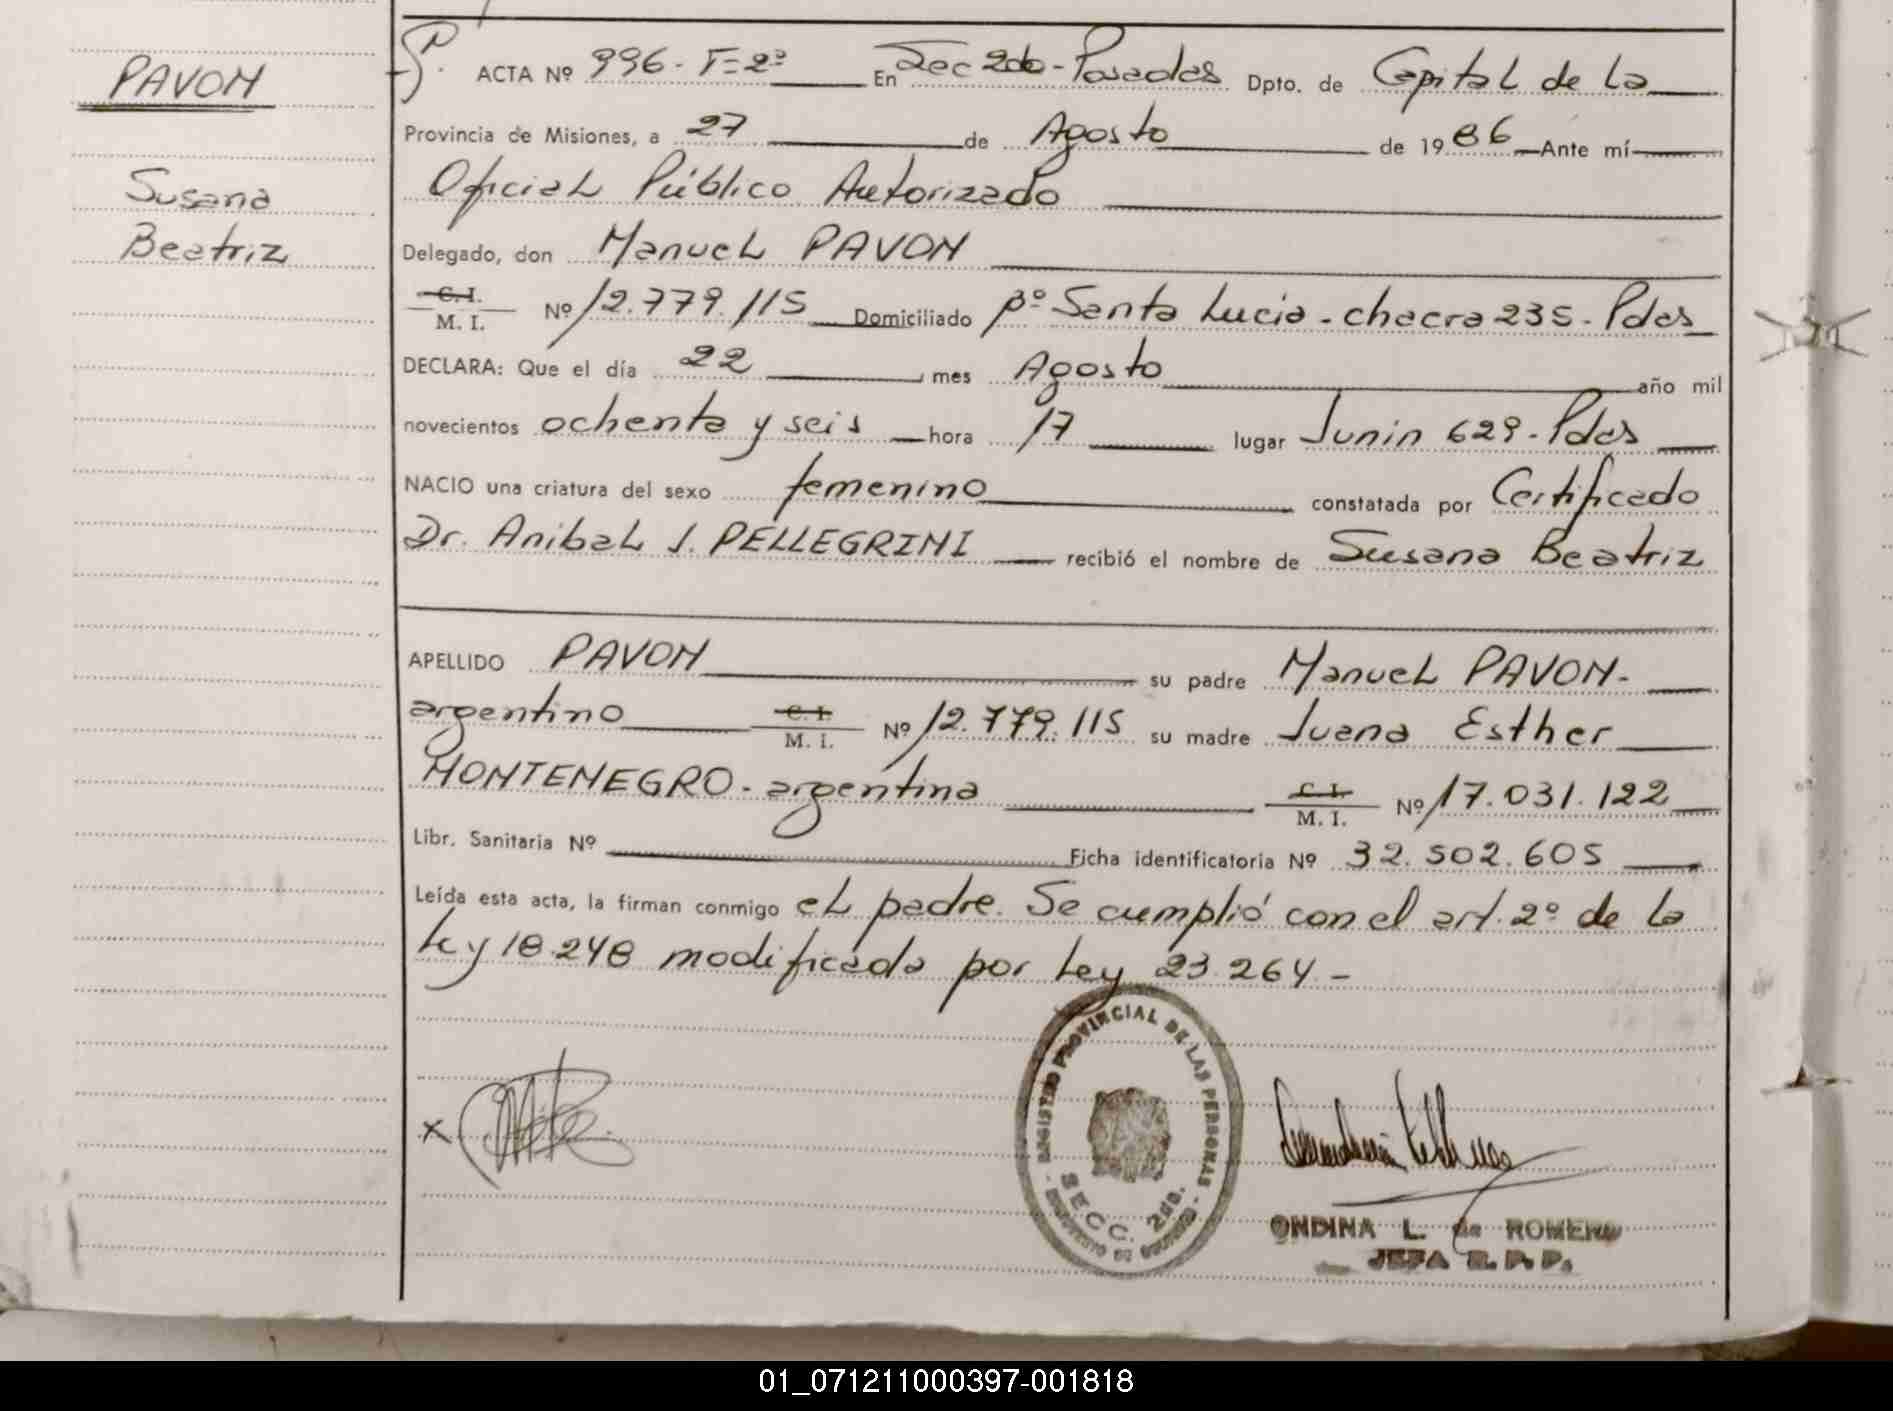 PAVON
Susana
Beatriz
ACTA Nº 996 - Tº 2º En Sec 2do - Posadas Dpto. de Capital de La
Provincia de Misiones, a 27 de Agosto de 1986 Ante mí
Oficial Público Autorizado
Delegado, don Manuel PAVON
C.I.
M. I. Nº 12.779.115 Domiciliado Bº Santa Lucia - chacra 235 - Pdas
DECLARA: Que el día 22 mes Agosto año mil
novecientos ochenta y seis hora 17 lugar Junin 629 - Pdas
NACIO una criatura del sexo femenino constatada por Certificado
Dr. Anibal J. PELLEGRINI recibió el nombre de Susana Beatriz
APELLIDO PAVON su padre Manuel PAVON -
argentino C. I.
M. I. Nº 12.779.115 su madre Juana Esther
MONTENEGRO - argentina C. I.
M. I. Nº 17.031.122
Libr. Sanitaria Nº Ficha identificatoria Nº 32.502.605
Leída esta acta, la firman conmigo el padre. Se cumplió con el art. 2º de la
Ley 18.248 modificada por Ley 23.264 -
REGISTRO PROVINCIAL DE LAS PERSONAS
SECC. 2da.
x
ONDINA L. de ROMERO
JEFA R. P. P.
01_071211000397-001818